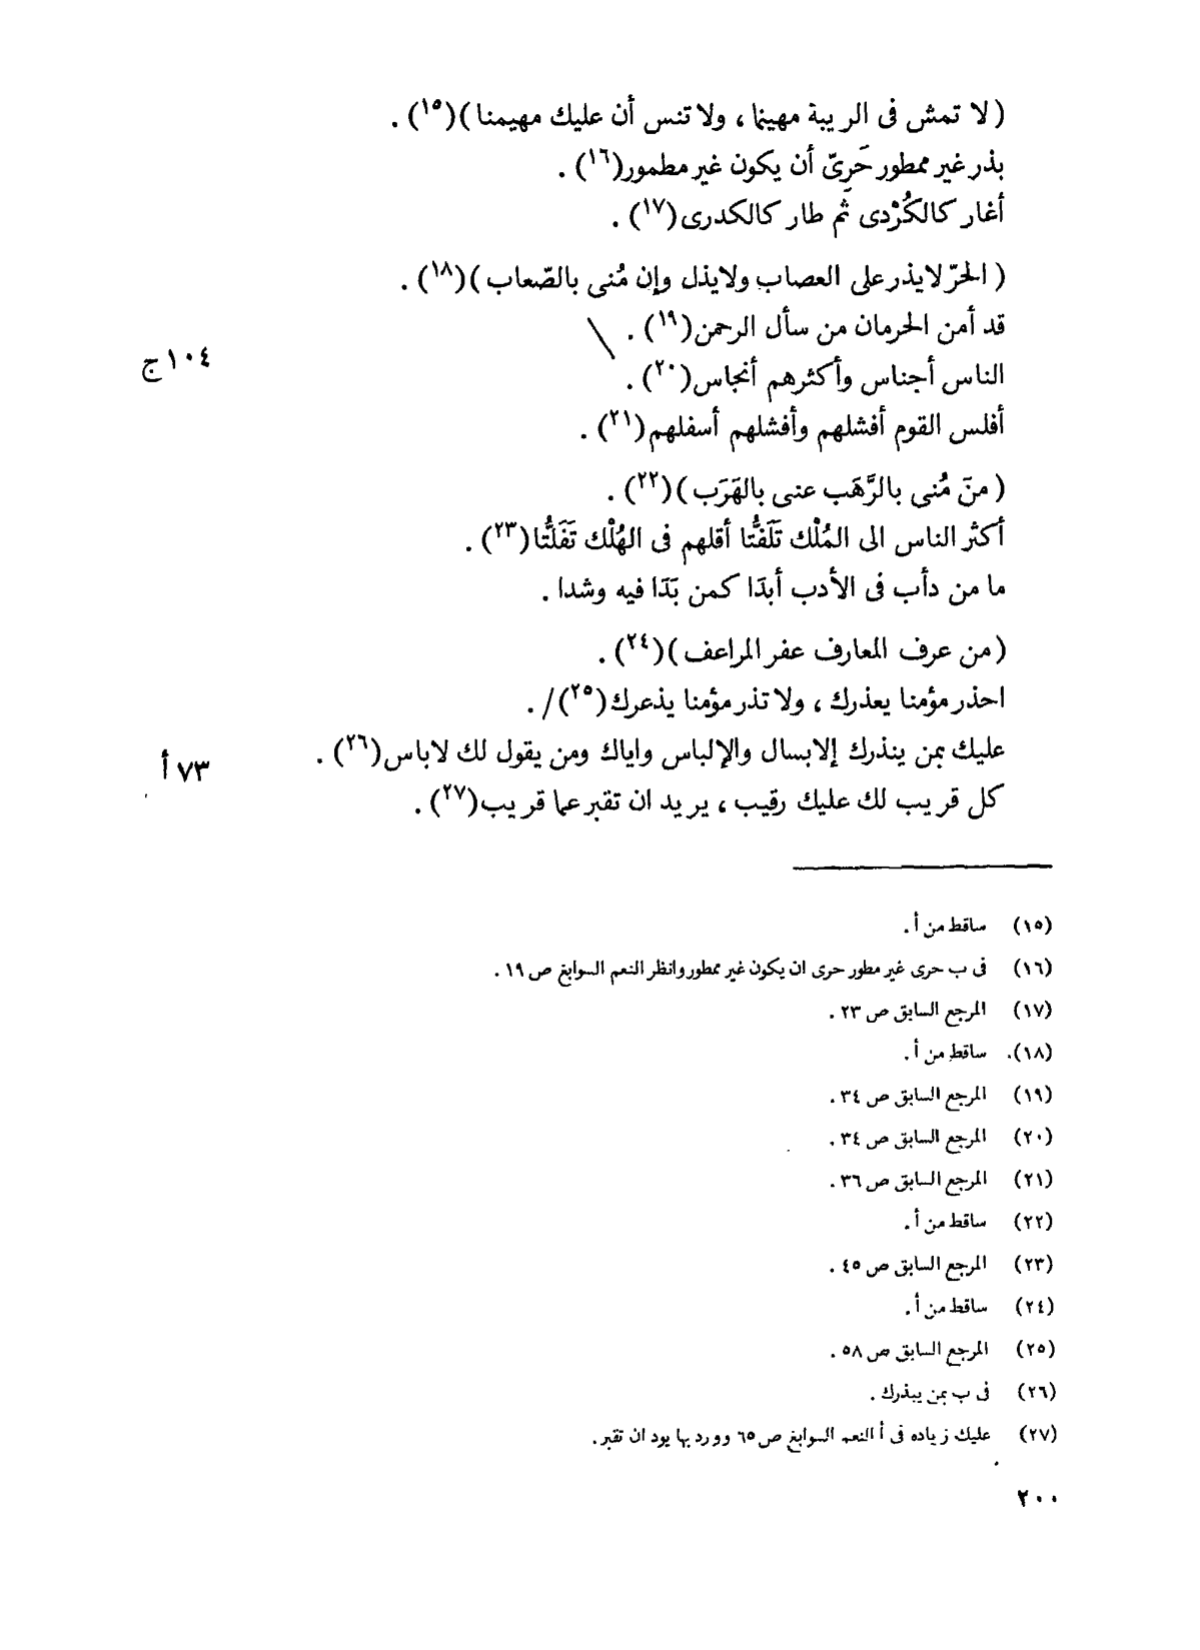 ( لا تمش فى الريبة مهينما ، ولا تنس أن عليك مهيمنا )(١٥) .
بذر غير ممطور حَرِىّ أن يكون غير مطمور(١٦) .
أغار كالكُرْدى ثَم طار كالكدرى(١٧) .
( الحرّ لا يذر على العصاب ولا يذل وإن مُنى بالصّعاب )(١٨) .
قد أمن الحرمان من سأل الرحمن(١٩) . \
١٠٤ ج
الناس أجناس وأكثرهم أنجاس(٢٠) .
أفلس القوم أفشلهم وأفشلهم أسفلهم(٢١) .
( منَ مُنى بالرَّهَب عنى بالهَرَب )(٢٢) .
أكثر الناس الى المُلْك تَلَفُّتا أقلهم فى الهُلْك تَفَلُّتا(٢٣) .
ما من دأب فى الأدب أبدَا كمن بَدَا فيه وشدا .
( من عرف المعارف عفر المراعف )(٢٤) .
احذر مؤمنا يعذرك ، ولا تذر مؤمنا يذعرك(٢٥)/ .
عليك بمن ينذرك إلابسال والإلباس واياك ومن يقول لك لاباس(٢٦) .
٧٣ أ
كل قريب لك عليك رقيب ، يريد ان تقبر عما قريب(٢٧) .
(١٥) ساقط من أ .
(١٦) فى ب حرى غير مطور حرى ان يكون غير ممطور وانظر النعم السوابغ ص ١٩ .
(١٧) المرجع السابق ص ٢٣ .
(١٨). ساقط من أ .
(١٩) المرجع السابق ص ٣٤ .
(٢٠) المرجع السابق ص ٣٤ .
(٢١) المرجع السابق ص ٣٦ .
(٢٢) ساقط من أ .
(٢٣) المرجع السابق ص ٤٥ .
(٢٤) ساقط من أ .
(٢٥) المرجع السابق ص ٥٨ .
(٢٦) فى ب بمن يبذرك .
(٢٧) عليك زياده فى أ النعم السوابغ ص ٦٥ وورد بها يود ان تقبر .
٢٠٠